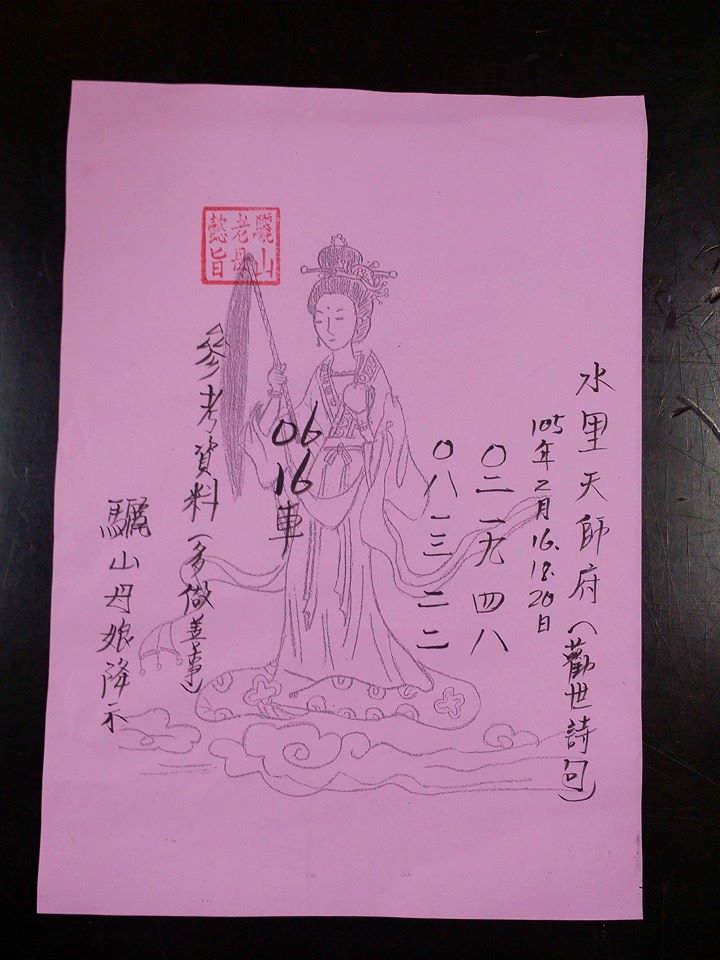 水里天師府（勸世詩句）
105年2月16.18.20日
〇二 一九 四八
〇八 一三 二二
06
16
車
參考資料（多做善事）
驪山母娘降示
驪山
老母
懿旨